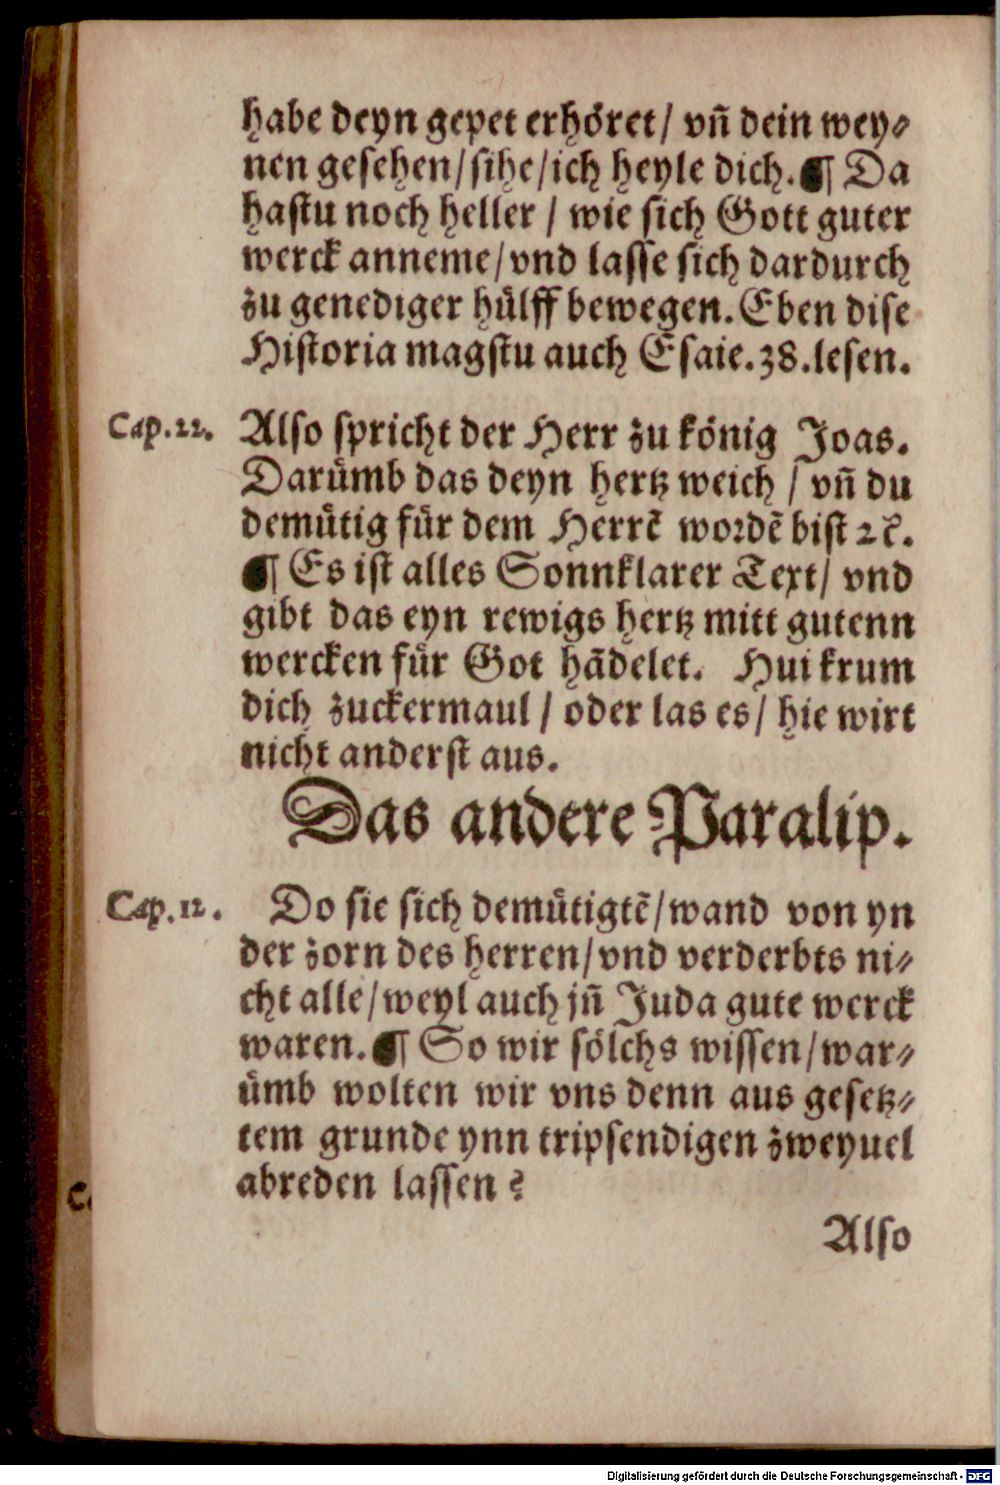 habe deyn gepet erhöret / vñ dein wey⸗
nen gesehen / sihe / ich heyle dich. ¶ Da
hastu noch heller / wie sich Gott guter
werck anneme / vnd lasse sich dardurch
zu genediger hülff bewegen. Eben dise
Historia magstu auch Esaie. 38. lesen.
Cap. 22. Also spricht der Herr zu könig Joas.
Darümb das deyn hertz weich / vñ du
demütig für dem Herrẽ wordẽ bist ꝛc̃.
¶ Es ist alles Sonnklarer Text / vnd
gibt das eyn rewigs hertz mitt gutenn
wercken für Got hãdelet. Hui krum
dich zuckermaul / oder las es / hie wirt
nicht anderst aus.
Das andere Paralip.
Cap. 12. Do sie sich demütigtẽ / wand von yn
der zorn des herren / vnd verderbts ni⸗
cht alle / weyl auch jñ Juda gute werck
waren. ¶ So wir sölchs wissen / war⸗
ümb wolten wir vns denn aus gesetz⸗
tem grunde ynn tripsendigen zweyuel
abreden lassen ?
Also
Digitalisierung gefördert durch die Deutsche Forschungsgemeinschaft - DFG